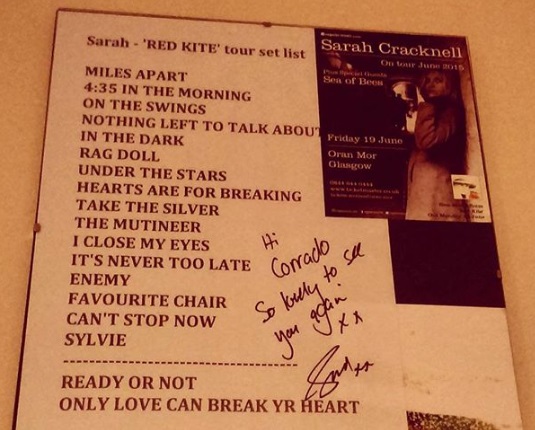 Sarah - 'RED KITE' tour set list
MILES APART
4:35 IN THE MORNING
ON THE SWINGS
NOTHING LEFT TO TALK ABOUT
IN THE DARK
RAG DOLL
UNDER THE STARS
HEARTS ARE FOR BREAKING
TAKE THE SILVER
THE MUTINEER
I CLOSE MY EYES
IT'S NEVER TOO LATE
ENEMY
FAVOURITE CHAIR
CAN'T STOP NOW
SYLVIE
READY OR NOT
ONLY LOVE CAN BREAK YR HEART
Hi
Corrado
So lovely to see
you again
x x
xx
Sarah Cracknell
On tour June 2015
Plus Special Guests
Sea of Bees
Friday 19 June
Oran Mor
Glasgow